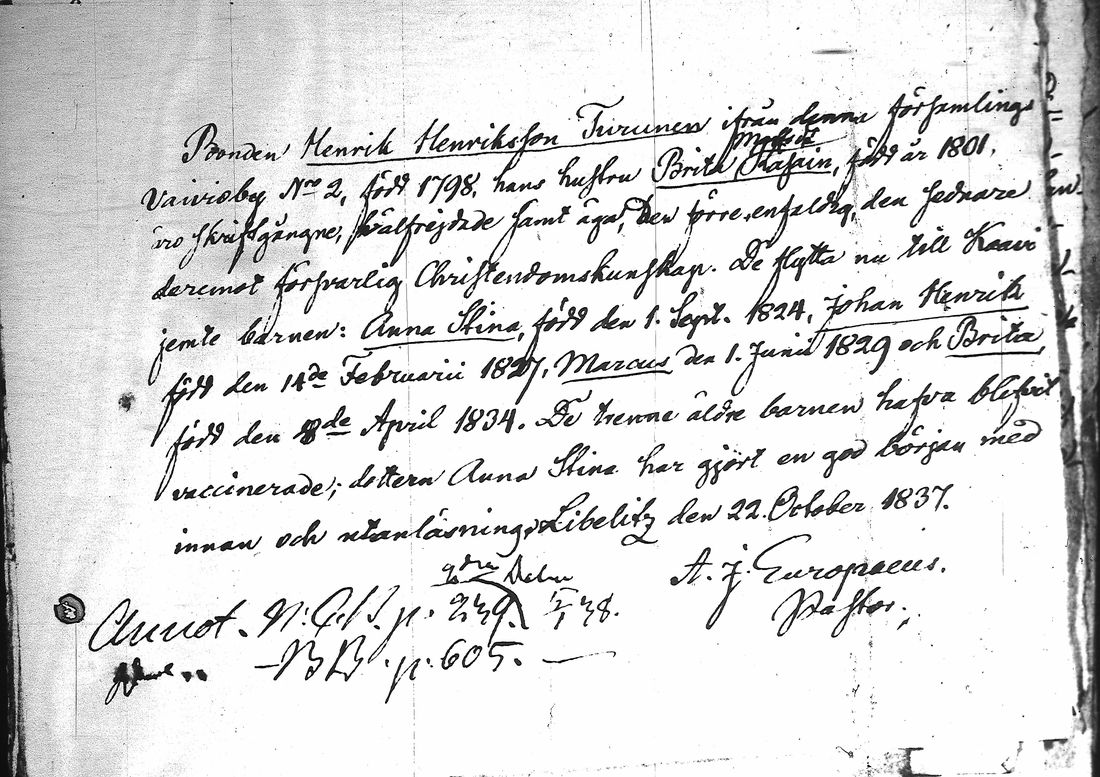 Bonden Henrik Henriksson Turunen ifrån denna församlings
Vaivioby Nro 2, född 1798, hans hustru Brita Kasain, född år 1801,
äro skriftgångne, välfrejdade samt äga, den förre, enfaldig, den sednare
deremot försvarlig Christendomskunskap. De flytta nu till Kaavi
jemte barnen: Anna Stina, född den 1. Sept. 1824, Johan Henrik
född den 14de Februarii 1827, Marcus den 1. Junii 1829 och Brita,
född den 8de April 1834. De trenne äldre barnen hafva blifvit
vaccinerade; dottern Anna Stina har gjort en god början med
innan och utanläsning, Libelitz den 22. October 1837.
A. J. Europaeus.
Pastor.
Annot. N. p. 239. 38.
B B. p. 605.